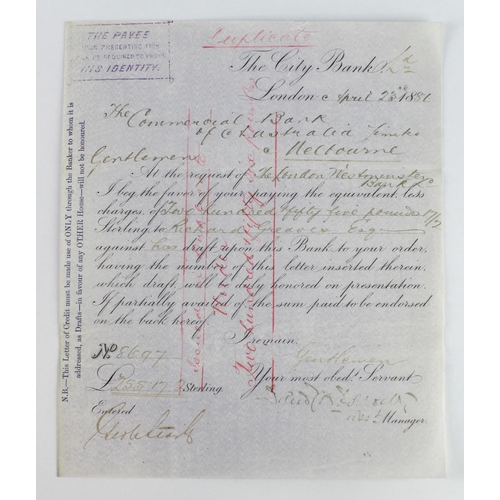 Duplicate
THE PAYEE
HIS IDENTITY.
The City Bank Ld
London April 23rd 1881
The Commercial Bank
of Australia Limited
Melbourne
Gentlemen
At the request of The London & Westminster
Bank
I beg the favor of your paying the equivalent, less
charges, of Two hundred fifty five pounds 17/
Sterling to Richard Greaves Esq
against his draft upon this Bank to your order,
having the number of this letter inserted therein,
which draft will be duly honored on presentation.
If partially availed of the sum paid to be endorsed
on the back hereof.
I remain,
Gentlemen
No 8697
£255.17. Sterling.
Your most obedt. Servant
Entered
Manager.
N.B.—This Letter of Credit must be made use of ONLY through the Banker to whom it is
addressed, as Drafts—in favour of any OTHER House—will not be honoured.
Under
Two hundred fifty six pounds